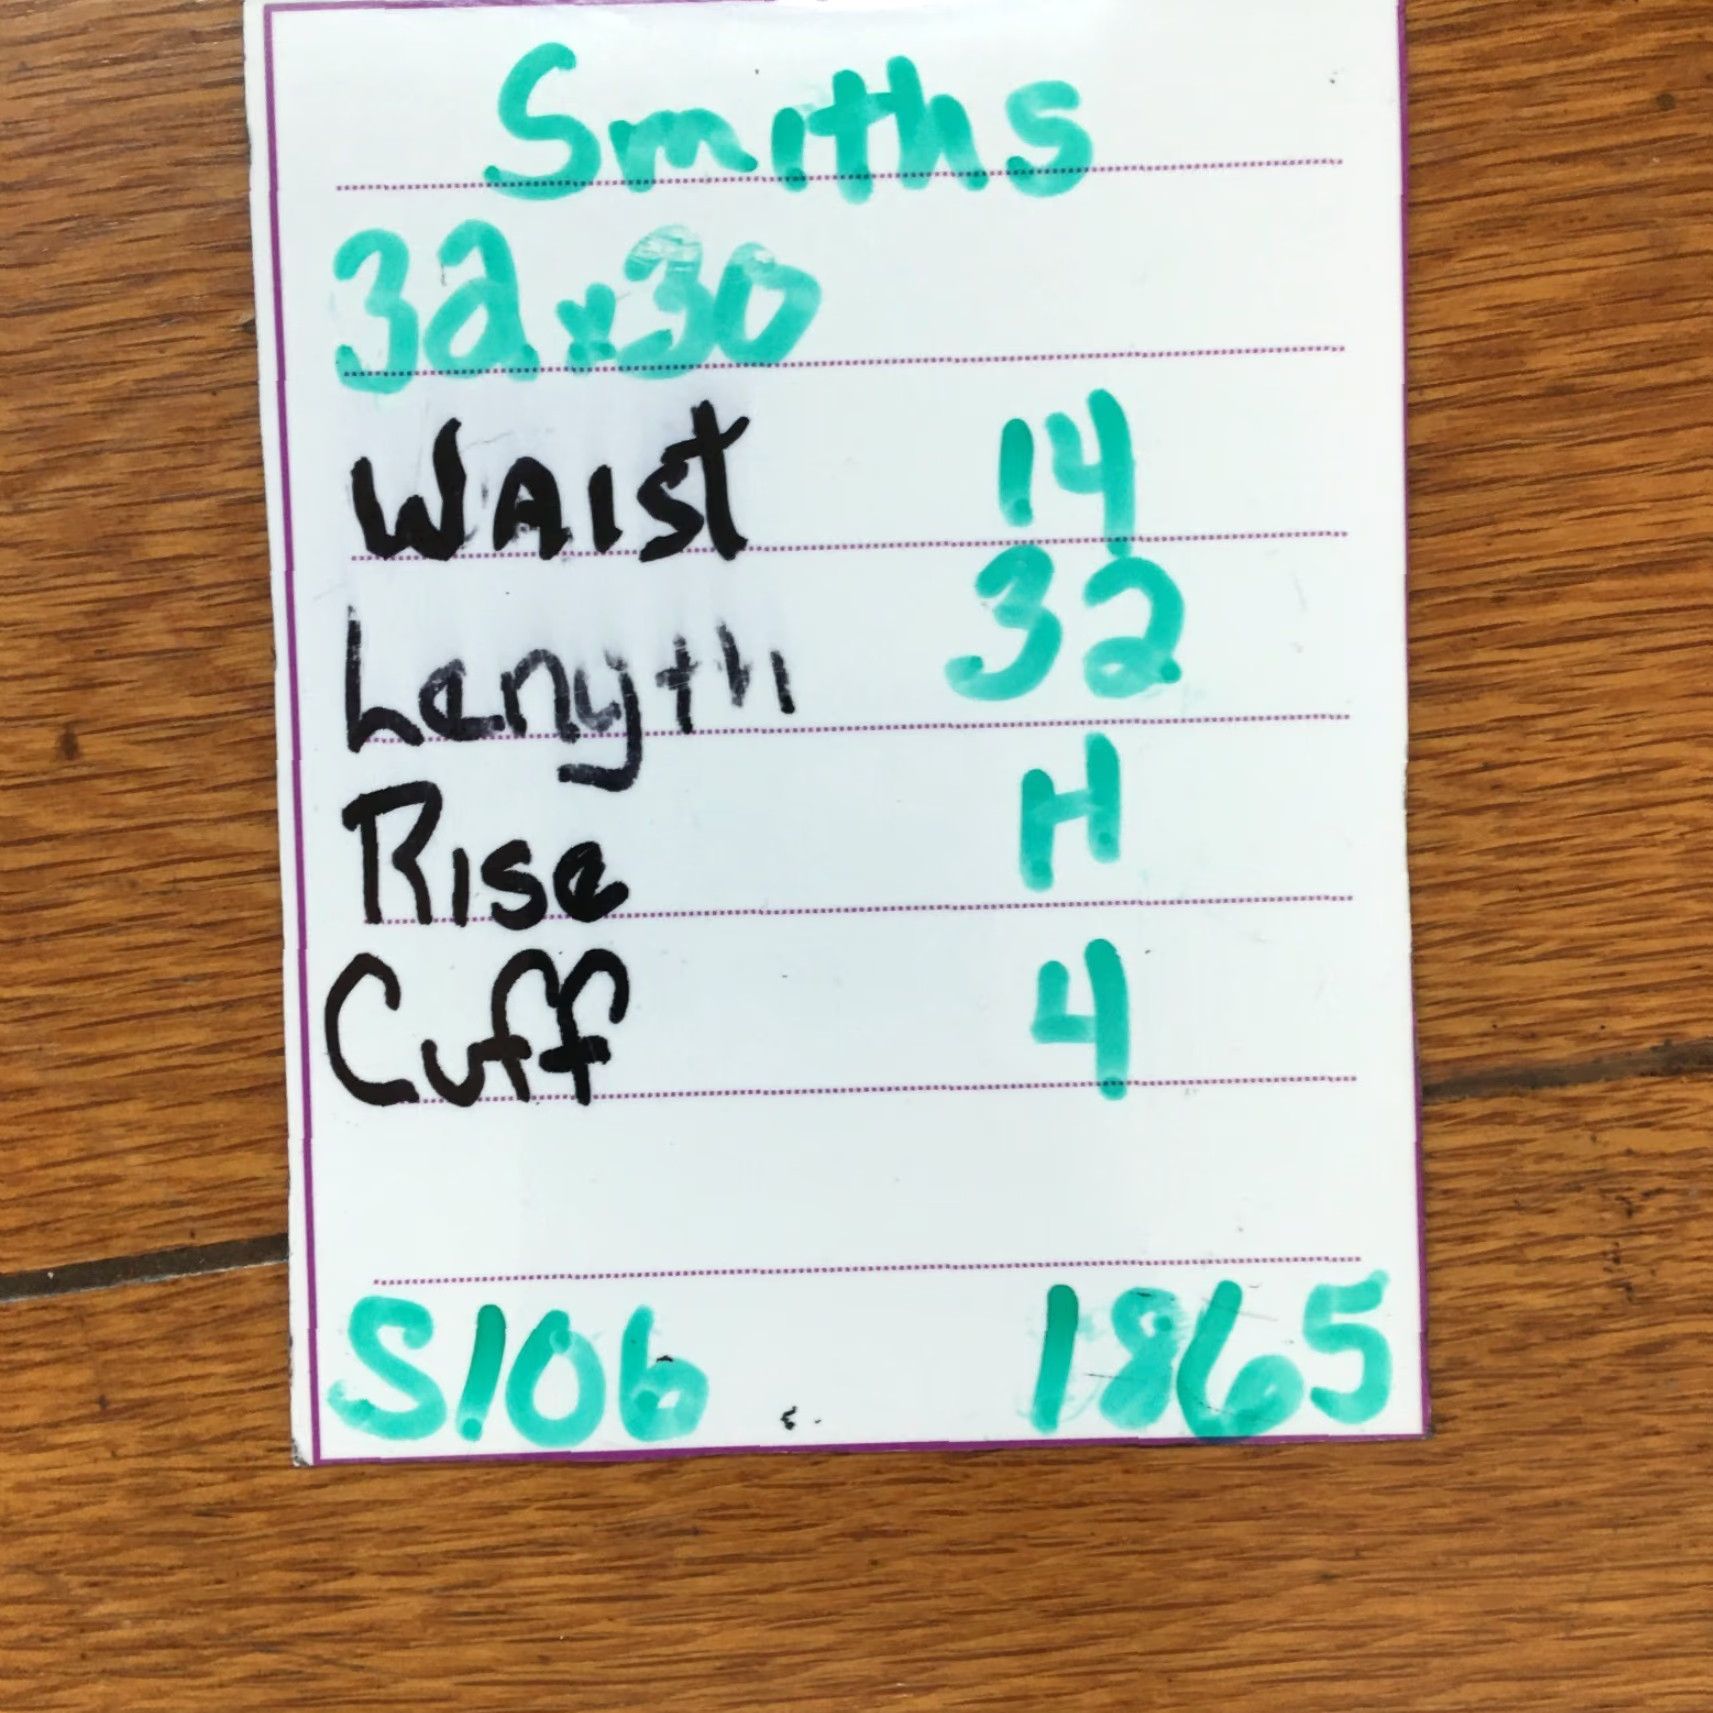 Smiths
32x30
WAIST 14
Length 32
Rise H
Cuff 4
S106 1865